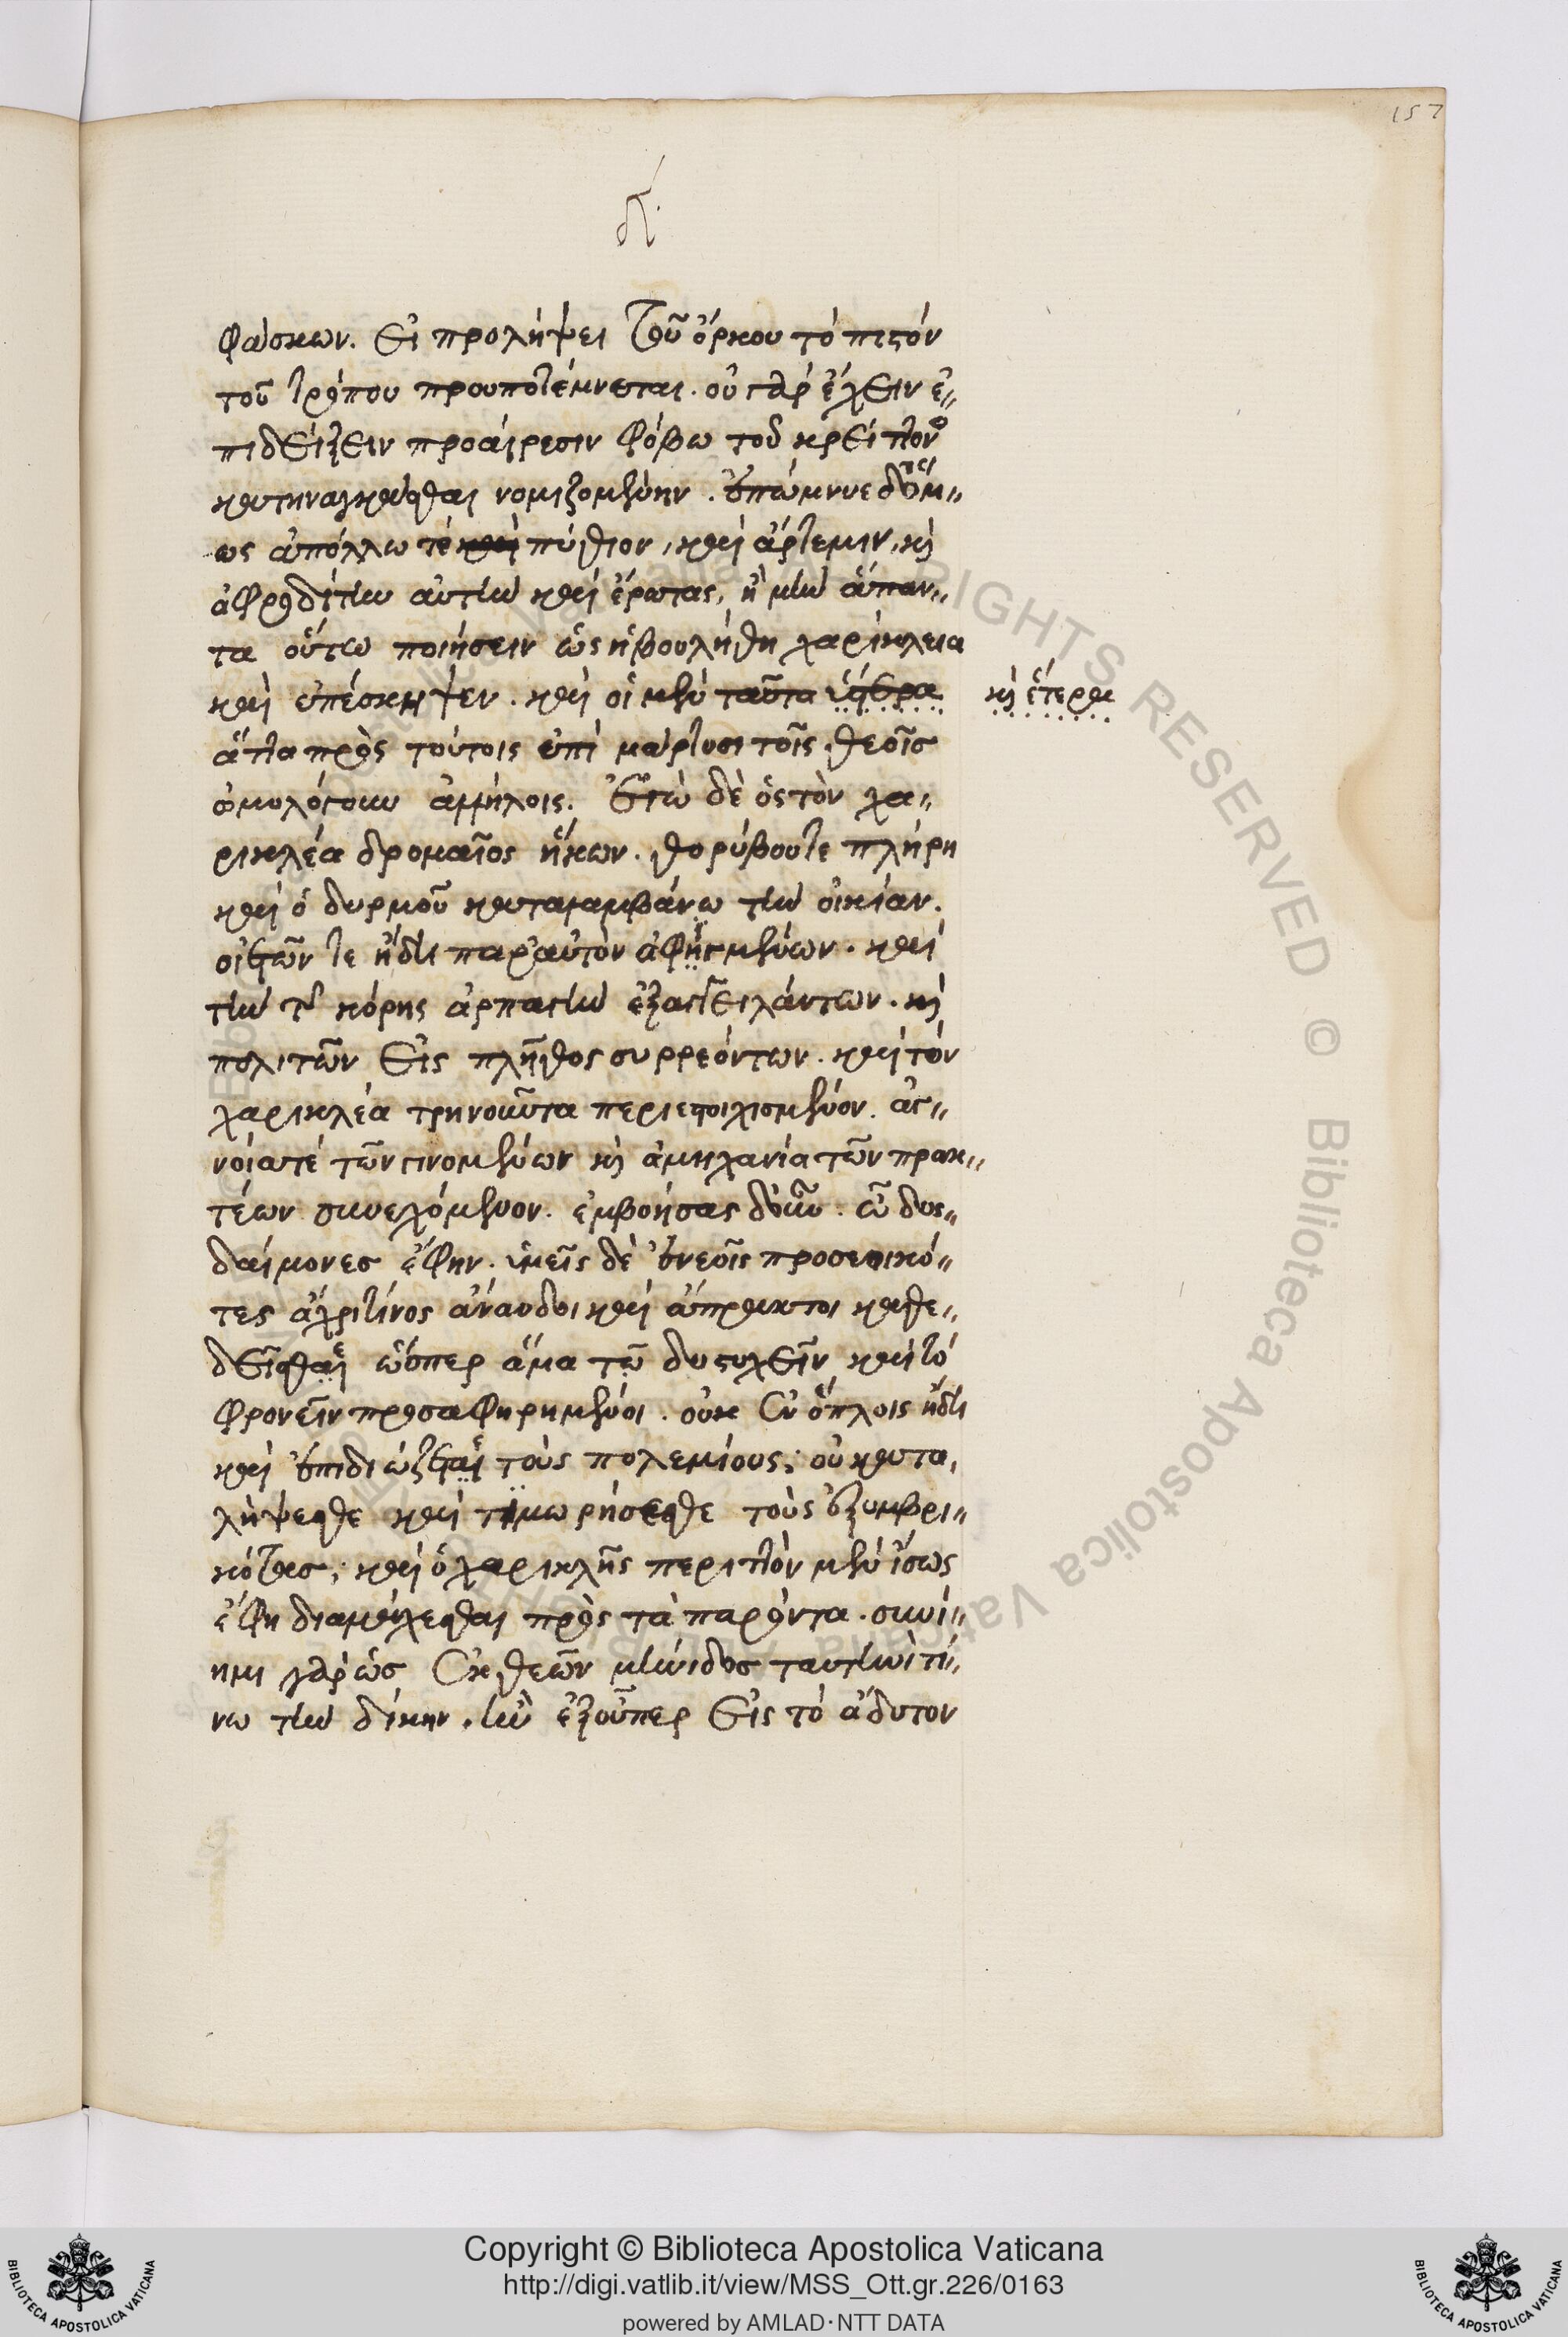 157
δ΄.
φάσκων. εἰ προλήψει τοῦ ὅρκου τὸ πιστὸν
τοῦ τρόπου προυποτέμνεται. οὐ γὰρ ἔχειν ἐ„
πιδείξειν προαίρεσιν φόβω τοῦ κρείττονος
κατηναγκάσθαι νομιζομένην. ἐπώμνυε δ' ὅμ„
ως ἀπόλλω τὲ καὶ πύθιον, καὶ ἄρτεμιν, καὶ
ἀφροδίτην αὐτὴν καὶ ἔρωτας, ἦ μὴν ἅπαν„
τα οὕτω ποιήσειν ὡς ἠβουλήθη χαρίκλεια
καὶ ἐπέσκηψεν. καὶ οἱ μὲν ταῦτα
καὶ ἕτερα
ἄττα πρὸς τούτοις ἐπὶ μάρτυσι τοῖς θεοῖσ
ὡμολόγουν ἀλλήλοις. ἐγὼ δὲ ὡς τὸν χα„
ρικλέα δρομαῖος ἥκων. θορύβου τε πλήρη
καὶ ὀδυρμοῦ καταλαμβάνω τὴν οἰκίαν.
οἰκετῶν τε ἤδη παρ' αὐτὸν ἀφιγμένων. καὶ
τὴν τῆς κόρης ἁρπαγὴν ἐξαγγειλάντων. καὶ
πολιτῶν εἰς πλῆθος συρρεόντων. καὶ τὸν
χαρικλέα θρηνοῦντα περιεστοιχισμένον. ἀγ„
νοίατὲ τῶν γινομένων καὶ ἀμηχανία τῶν πρακ„
τέων συνεχόμενον. ἐμβοήσας οὖν. ὦ δυς„
δαίμονεσ ἔφην. ὑμεῖς δὲ ἐνεοῖς προσεοικό„
τες ἄχρι τίνος ἄναυδοι καὶ ἄπρακτοι καθε„
δεῖσθαι ὥσπερ ἅμα τῶ δυστυχεῖν καὶ τὸ
φρονεῖν προσαφηρημένοι. οὐκ ἐν ὅπλοις ἤδη
καὶ ἐπιδιώξεται τοὺς πολεμίους; οὐ κατα„
λήψεσθε καὶ τιμωρήσεσθε τοὺς ἐξυμβρι„
κότας; καὶ ὁ χαρικλῆς περιττὸν μὲν ἴσως
ἔφη διαμάχεσθαι πρὸς τὰ παρόντα. συνί„
ημι γὰρ ὡσ ἐκ θεῶν μήνιδος ταύτην τί„
νω τὴν δίκην. ἣν ἐξ οὗπερ εἰς τὸ ἄδυτον
BIBLIOTECA APOSTOLICA VATICANA
Copyright © Biblioteca Apostolica Vaticana
http://digi.vatlib.it/view/MSS_Ott.gr.226/0163
powered by AMLAD·NTT DATA
BIBLIOTECA APOSTOLICA VATICANA